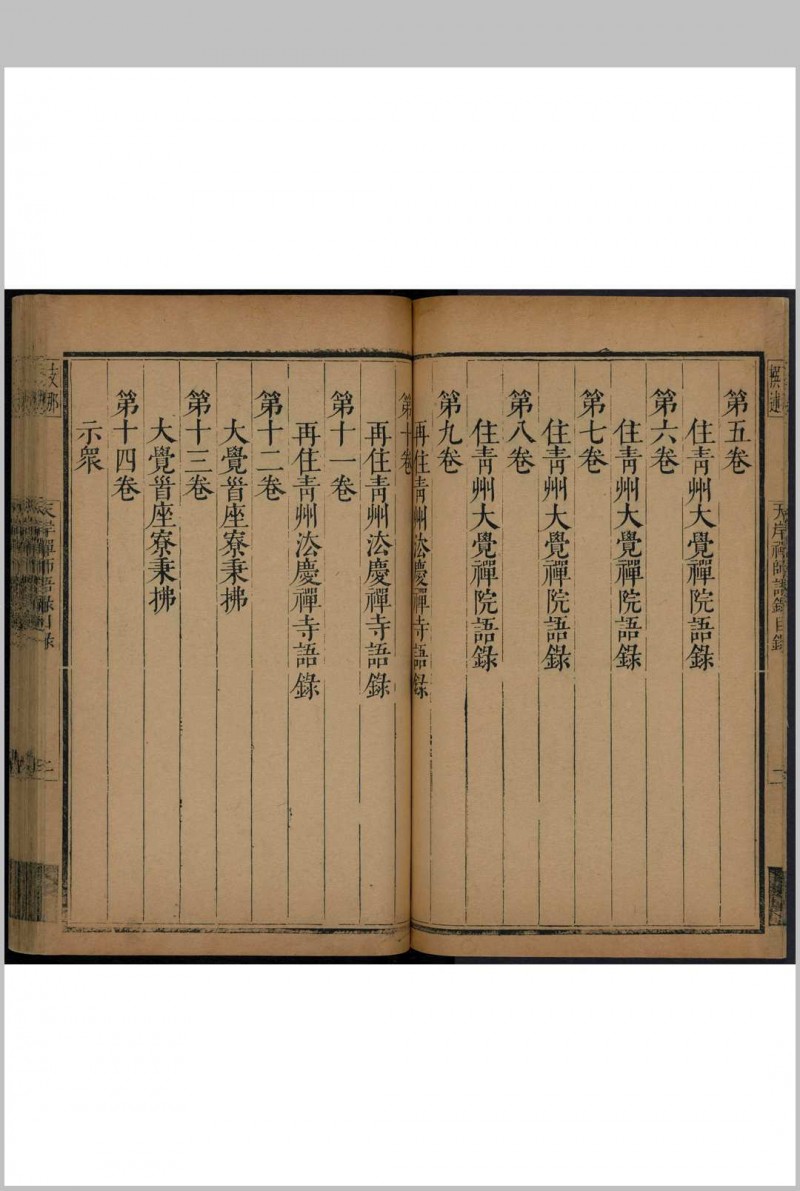 撰述
天岸禪師語錄目錄
第五卷
住靑州大覺禪院語錄
第六卷
住靑州大覺禪院語錄
第七卷
住靑州大覺禪院語錄
第八卷
住靑州大覺禪院語錄
第九卷
再住靑州法慶禪寺語錄
第十卷
再住靑州法慶禪寺語錄
第十一卷
再住靑州法慶禪寺語錄
第十二卷
大覺首座寮秉拂
第十三卷
大覺首座寮秉拂
第十四卷
示衆
支那
天岸禪師語錄目錄
二